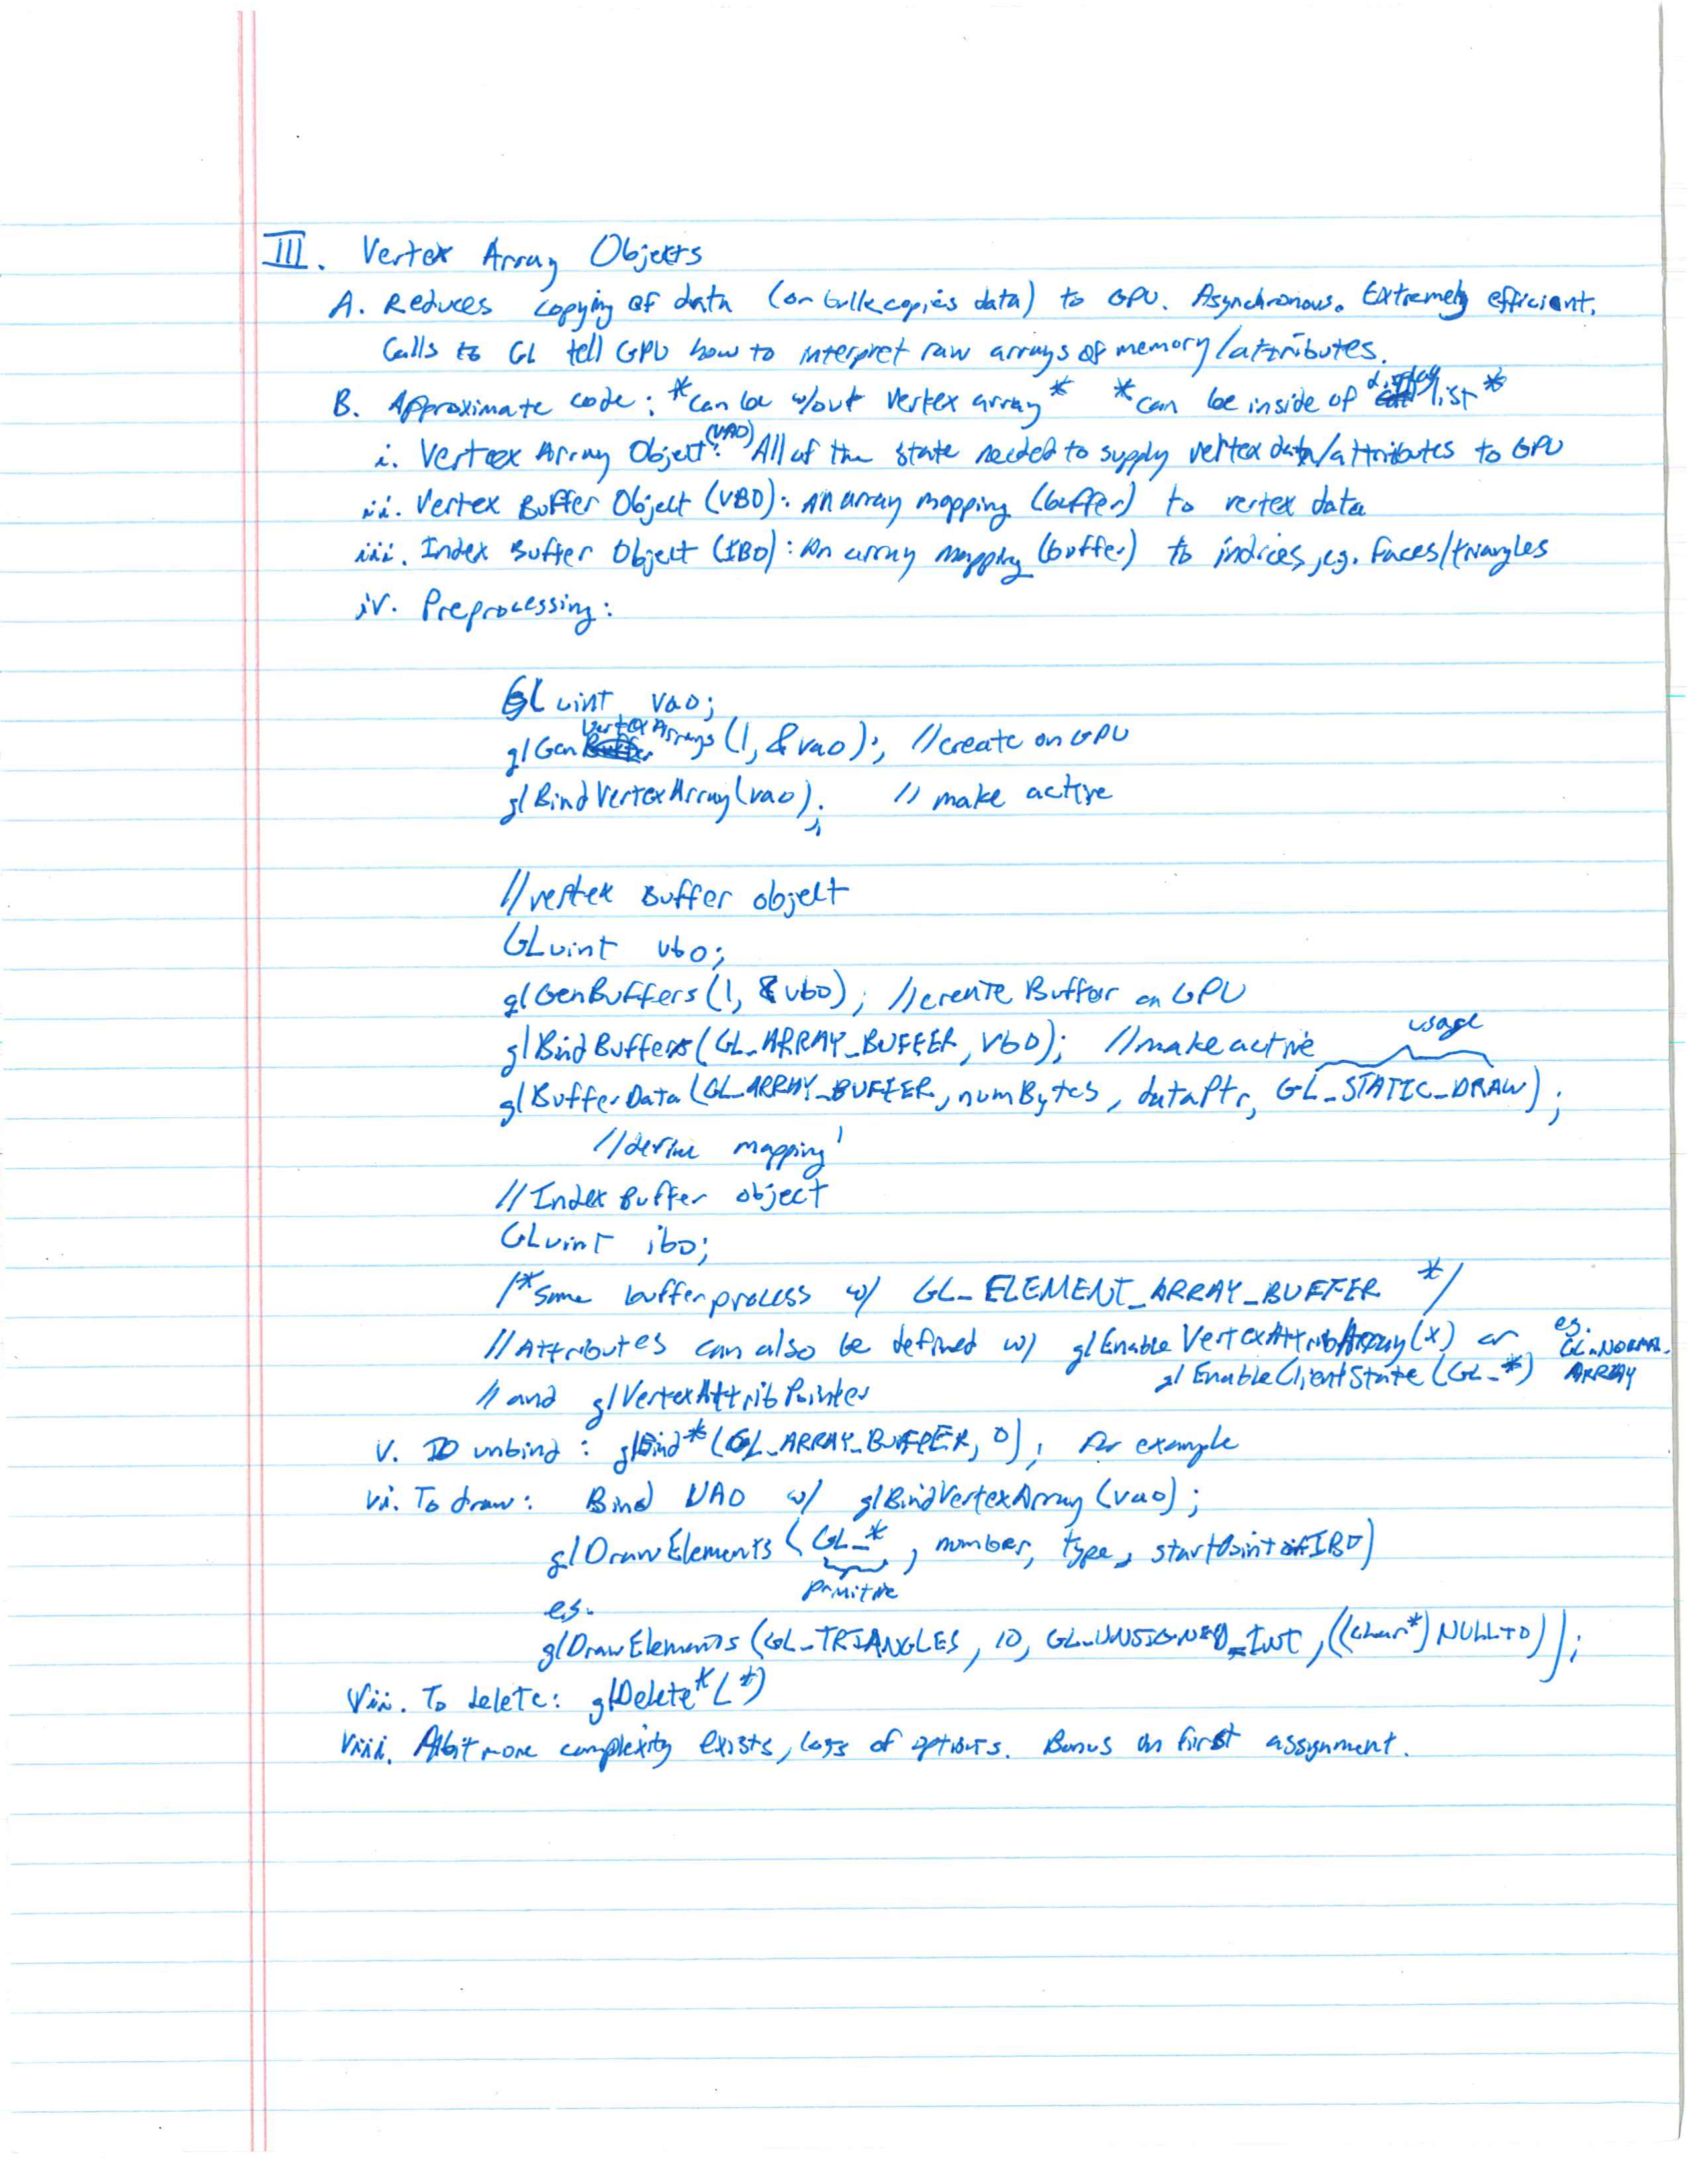 III. Vertex Array Objects
A. Reduces copying of data (or bulk copies data) to GPU. Asynchronous. Extremely efficient.
Calls to GL tell GPU how to interpret raw arrays of memory/attributes.
B. Approximate code: *can be w/out vertex array* *can be inside of display list*
i. Vertex Array Object (VAO): All of the state needed to supply vertex data/attributes to GPU
ii. Vertex Buffer Object (VBO): An array mapping (buffer) to vertex data
iii. Index Buffer Object (IBO): An array mapping (buffer) to indices, e.g. faces/triangles
iv. Preprocessing:
GLuint vao;
glGenVertexArrays(1, &vao); //create on GPU
glBindVertexArray(vao); // make active
//vertex Buffer object
GLuint vbo;
glGenBuffers(1, &vbo); //create Buffer on GPU
usage
glBindBuffers(GL_ARRAY_BUFFER, vbo); //make active
glBufferData(GL_ARRAY_BUFFER, numBytes, dataPtr, GL_STATIC_DRAW);
//define mapping
//Index Buffer object
GLuint ibo;
/*Same buffer process w/ GL_ELEMENT_ARRAY_BUFFER */
//Attributes can also be defined w/ glEnableVertexAttribArray(x) or eg. GL_NORMAL_
glEnableClientState(GL_*) ARRAY
// and glVertexAttribPointer
v. To unbind: glBind*(GL_ARRAY_BUFFER, 0); for example
vi. To draw: Bind VAO w/ glBindVertexArray(vao);
glDrawElements(GL_*, number, type, startPoint of IBO)
primitive
e.g.
glDrawElements(GL_TRIANGLES, 10, GL_UNSIGNED_INT, ((char*)NULL+0));
vii. To delete: glDelete*(*)
viii. A bit more complexity exists, lots of options. Bonus on first assignment.